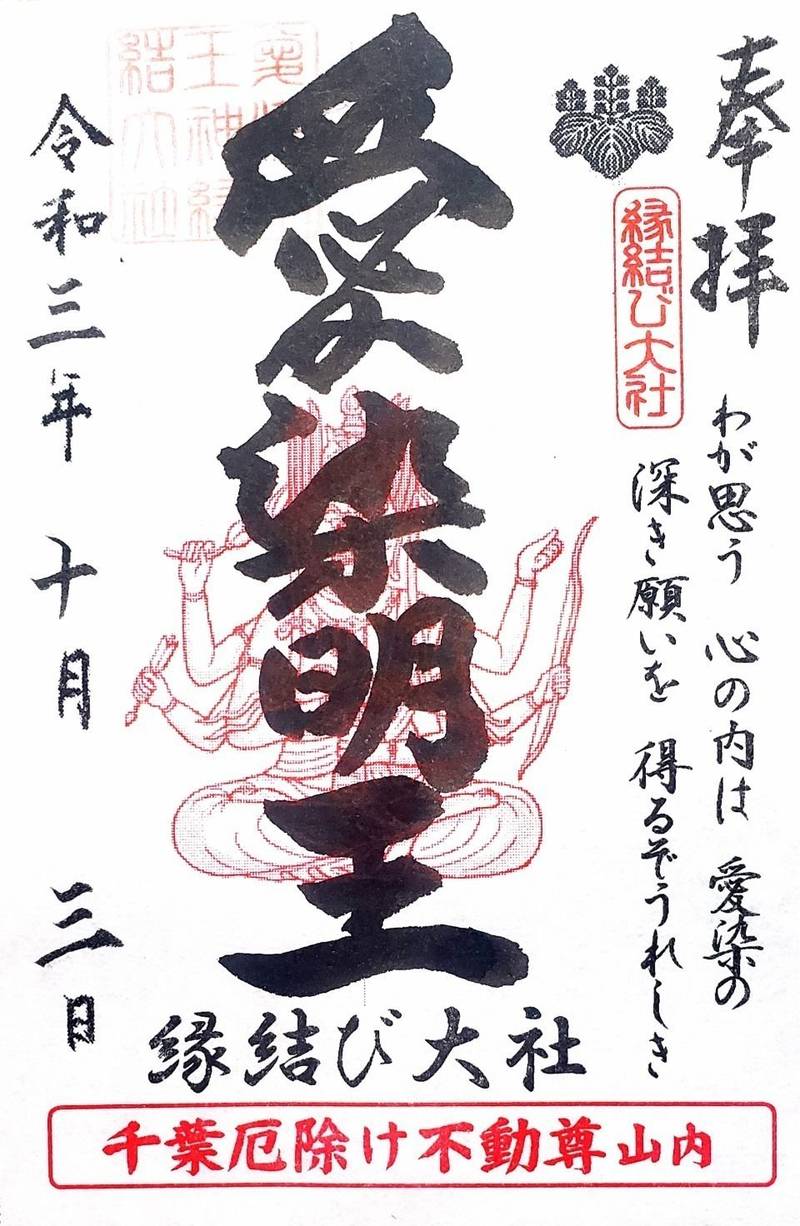 奉拝
縁結び大社
わが思う 心の内は 愛染の
深き願いを 得るぞうれしき
愛染明王
令和三年 十月 三日
縁結び大社
千葉厄除け不動尊山内